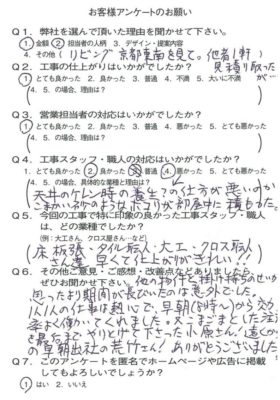 お客様アンケートのお願い
Q1．弊社を選んで頂いた理由を聞かせて下さい。
1. 金額 2. 担当者の人柄 3. デザイン・提案内容
4. その他（リビング京都東南を見て。他者1軒
見積り取ったが…
Q2．工事の仕上がりはいかがでしたか？
1. とても良かった 2. 良かった 3. 普通 4. 不満 5. 大いに不満
4. 5. の場合、理由は？（ ）
Q3．営業担当者の対応はいかがでしたか？
1. とても良かった 2. 良かった 3. 普通 4. 悪かった 5. とても悪かった
4. 5. の場合、理由は？（ ）
Q4．工事スタッフ・職人の対応はいかがでしたか？
1. とても良かった 2. 良かった 3. 普通 4. 悪かった 5. とても悪かった
4. 5. の場合、具体的な業種と理由は？
天井のケレン時の養生の仕方が悪いのか
こまかい灰のようなホコリが部屋中に積もった。
Q5．今回の工事で特に印象の良かった工事スタッフ・職人
は、どの業種でしたか？
（例：大工さん、クロス屋さん…など）
床板張・タイル職人・大工・クロス職人
さん達 早くて仕上がりがきれい!!
Q6．その他ご意見・ご感想・改善点などありましたら、
ぜひお聞かせ下さい。他のお件と掛け持ちのせいか
思ったより期間が長びいたのは意外でした。
仏々の仕事は熱心で、早朝（8時～）から効
率よく働いてくれました。又、こまごまとした注文
を最后までやりとげて下さった小原さん！遠くから
の早朝出社の荒竹さん！ありがとうございました
Q7．このアンケートを匿名でホームページや広告に掲載
してもよろしいでしょうか？
1. はい 2. いいえ